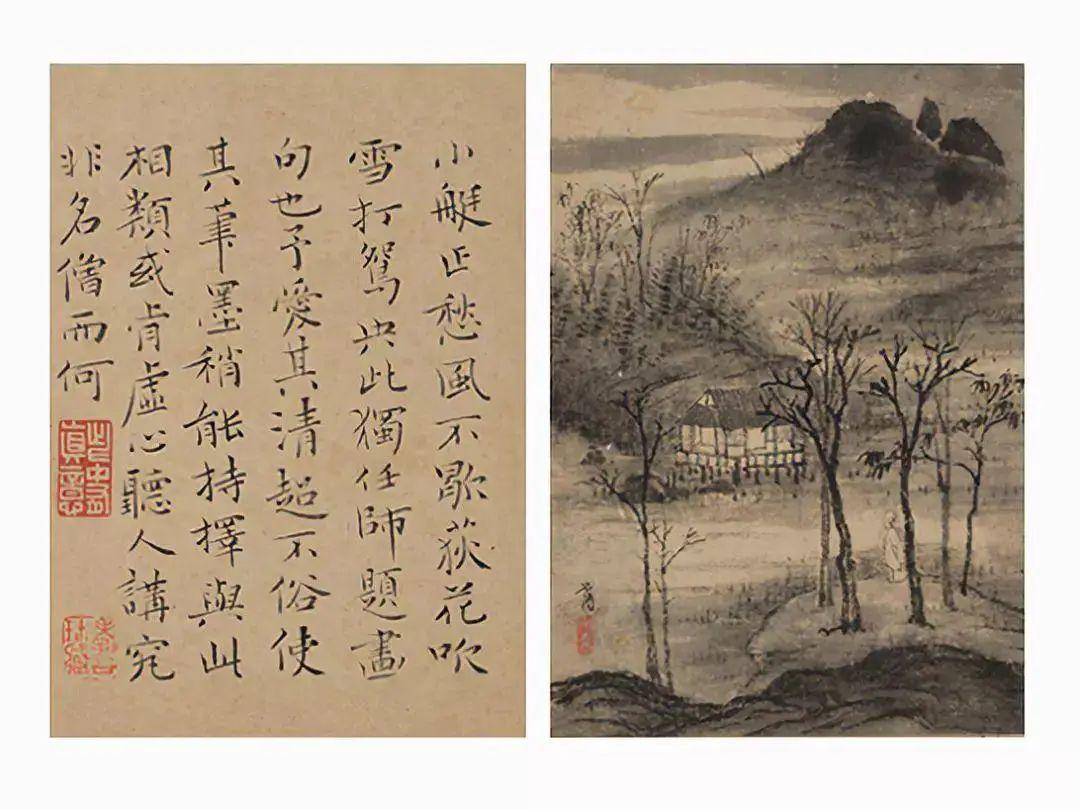 小艇正愁風不歇荻花吹
雪打鴛央此獨任師題畫
句也予愛其清超不俗使
其筆墨稍能持擇與此
相類或肯虛心聽人講究
非名僧而何
此中有真意